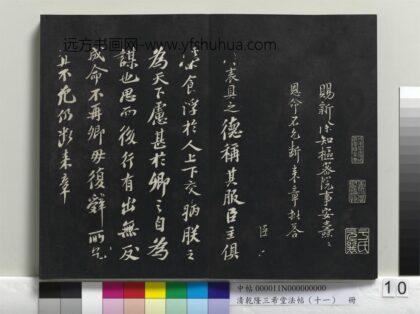 远方书画网 www.yfshuhua.com
賜新除知樞密院事安燾
恩命不允斷來章批答
臣
省表具之德稱其服臣主俱
榮食浮於人上下交病朕之
為天下慮甚於卿之自為
謀也思而後行有出無反
成命不再卿毋復辭所乞
宜不允仍斷來章
中帖 000011N000000000
清乾隆三希堂法帖（十一） 冊
10